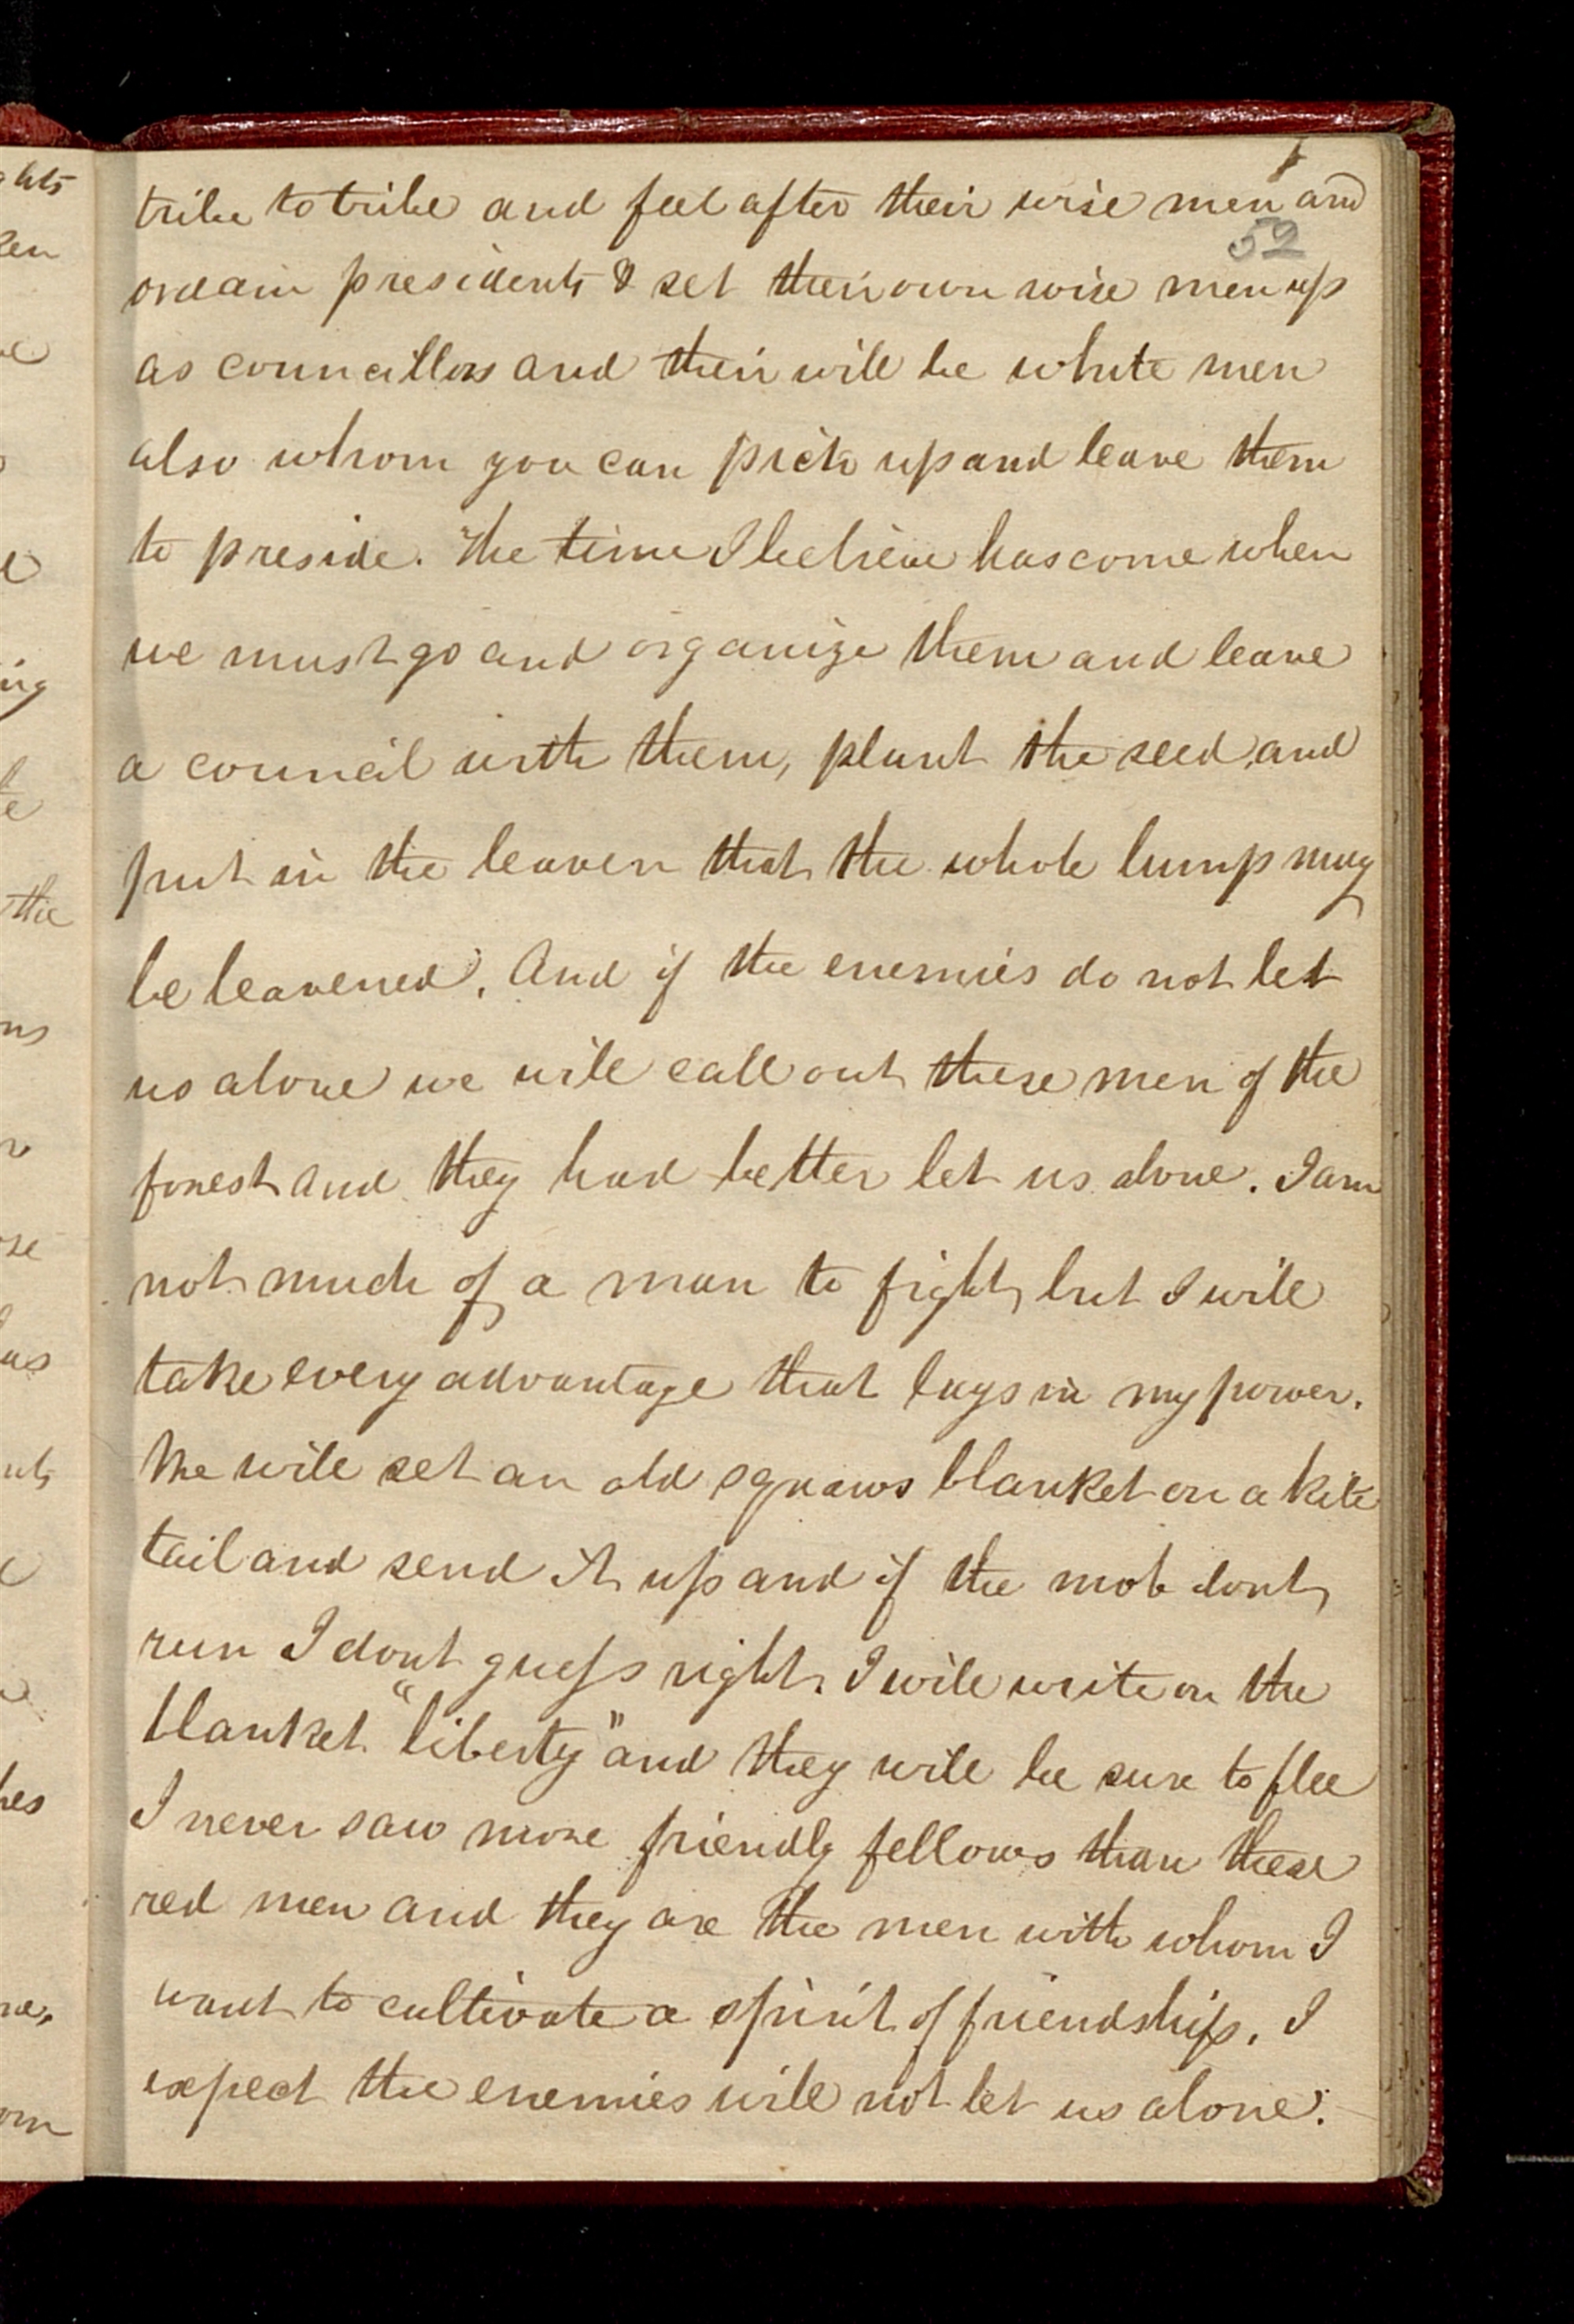 tribe to tribe and feel after their wise men and
52
ordain presidents & set their own wise men up
as councillors and their will be white men
also whom you can pick up and leave them
to preside. The time I believe has come when
we must go and organize them and leave
a council with them, plant the seed and
put in the leaven that the whole lump may
be leavened. And if the enemies do not let
us alone we will call out these men of the
forest and they had better let us alone. I am
not much of a man to fight, but I will
take every advantage that lays in my power.
We will set an old squaws blanket on a kite
tail and send it up and if the mob dont
run I dont guess right. I will write on the
blanket "liberty" and they will be sure to flee
I never saw more friendly fellows than these
red men and they are the men with whom I
want to cultivate a spirit of friendship. I
expect the enemies will not let us alone.
ken
ing
the
ns
se
has
hes
om